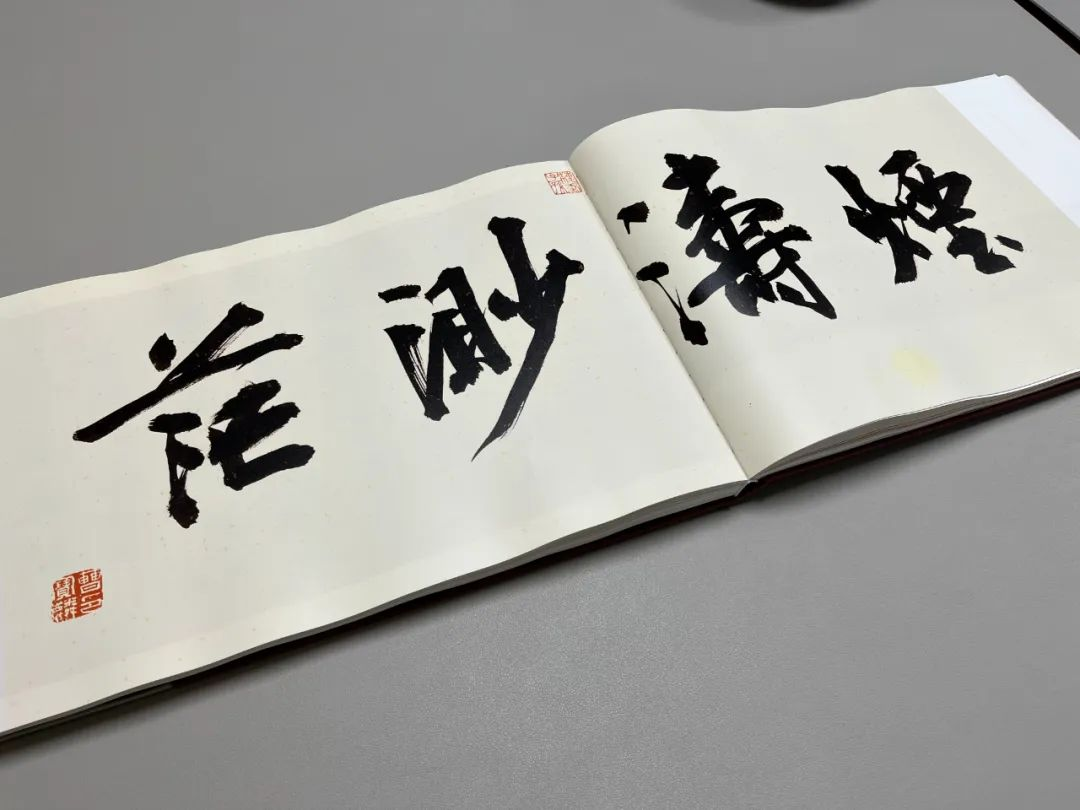 煙濤渺茫
曹印
寶麟